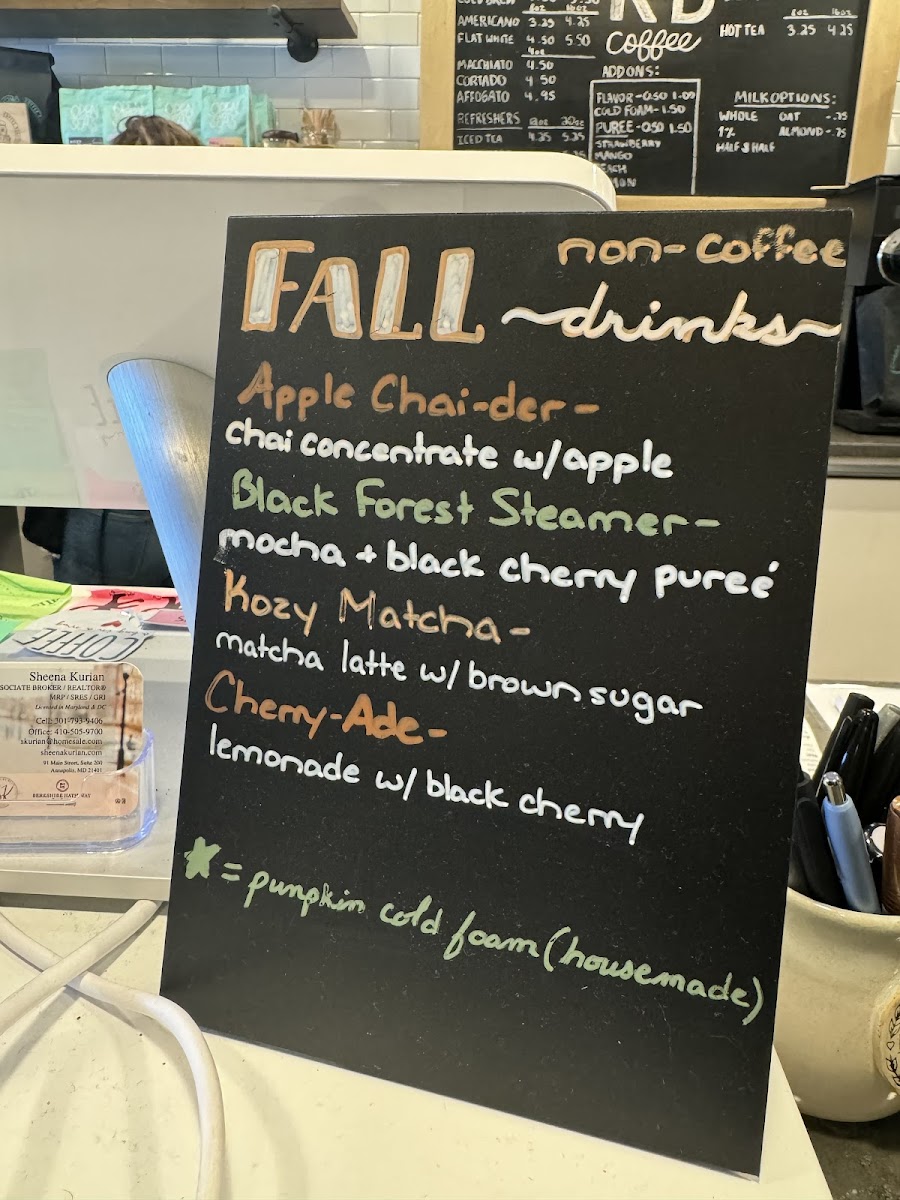 AMERICANO 3.25 4.25
FLAT WHITE 4.50 5.50
4oz
MACCHIATO 4.50
CORTADO 4.50
AFFOGATO 4.95
REFRESHERS 12oz 20oz
ICED TEA 4.25 5.25
coffee
ADD ONS:
FLAVOR-0.50 1.00
COLD FOAM-1.50
PUREE-0.50 1.50
STRAWBERRY
MANGO
8oz 16oz
HOT TEA 3.25 4.25
MILK OPTIONS:
WHOLE OAT -.75
1% ALMOND-.75
HALF & HALF
FALL non-coffee
~drinks~
Apple Chai-der-
chai concentrate w/apple
Black Forest Steamer-
mocha + black cherry pureé
Kozy Matcha-
matcha latte w/ brown sugar
Cherry-Ade-
lemonade w/ black cherry
= pumpkin cold foam (housemade)
COFFEE
Sheena Kurian
SOCIATE BROKER / REALTOR®
MRP / SRES / GRI
Licensed in Maryland & DC
Cell: 301-793-9406
Office: 410-505-9700
skurian@homesale.com
sheenakurian.com
91 Main Street, Suite 200
Annapolis, MD 21401